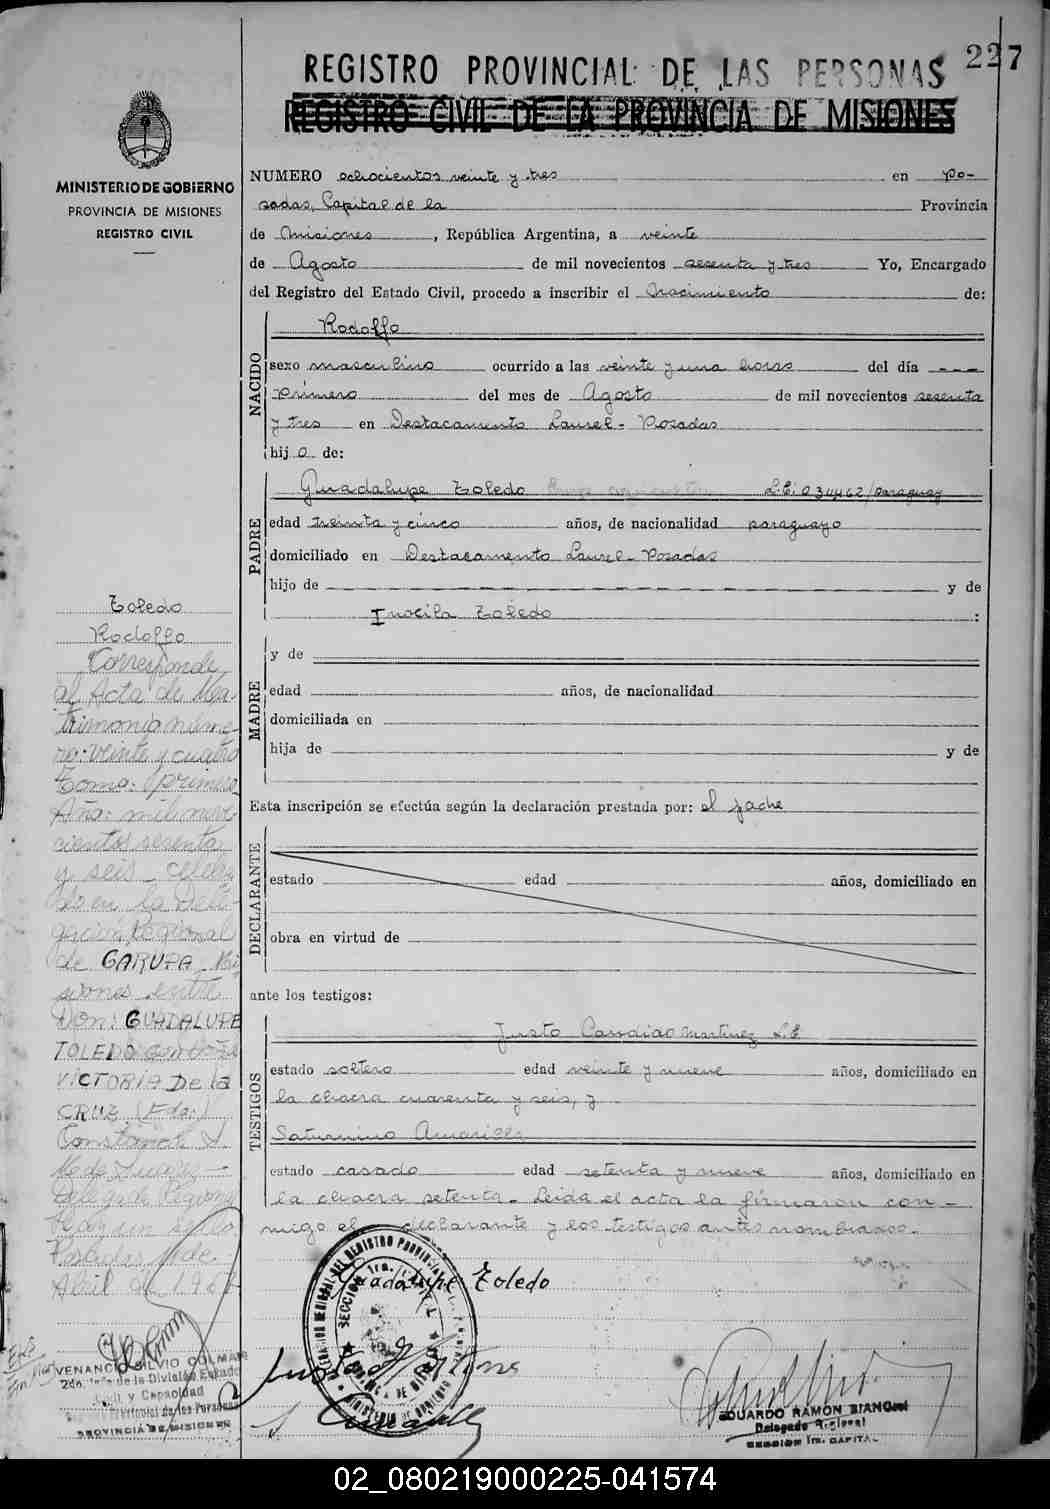 227
REGISTRO PROVINCIAL DE LAS PERSONAS
REGISTRO CIVIL DE LA PROVINCIA DE MISIONES
MINISTERIO DE GOBIERNO
PROVINCIA DE MISIONES
REGISTRO CIVIL
NUMERO ochocientos veinte y tres en Po-
sadas, Capital de la Provincia
de Misiones, República Argentina, a veinte
de Agosto de mil novecientos sesenta y tres Yo, Encargado
del Registro del Estado Civil, procedo a inscribir el Nacimiento de:
NACIDO
Rodolfo
sexo masculino ocurrido a las veinte y una horas del día ---
primero del mes de Agosto de mil novecientos sesenta
y tres en Destacamento Laurel - Posadas
hijo de:
PADRE
Guadalupe Toledo L.E: 034462/paraguay
edad treinta y cinco años, de nacionalidad paraguayo
domiciliado en Destacamento Laurel - Posadas
hijo de - - - - - - y de
Toledo:
MADRE
y de
edad años, de nacionalidad
domiciliada en
hija de y de
Esta inscripción se efectúa según la declaración prestada por: el padre
DECLARANTE
estado edad años, domiciliado en
obra en virtud de
ante los testigos:
TESTIGOS
Justo Martinez L.E
estado soltero edad veinte y nueve años, domiciliado en
la chacra cuarenta y seis, y
Saturnino Amarilla
estado casado edad setenta y nueve años, domiciliado en
la chacra setenta. Leida el acta la firmaron con-
migo el declarante y los testigos antes nombrados.
Guadalupe Toledo
EDUARDO RAMON BIANCHI
Delegado Regional
SECCION 1ra. CAPITAL
Toledo
Rodolfo
Corresponde
al Acta de Ma-
trimonio núme-
ro: veinte y cuatro
Tomo: primero
Año: mil nove-
cientos sesenta
y seis - celebra
do en la Dele-
gación Regional
de GARUPA - Mi
siones entre
Don: GUADALUPE
TOLEDO con doña
VICTORIA De la
CRUZ (Fdo:)
Delegada Regional
Hay un sello
Posadas de
Abril de
VENANCIO SILVIO COLMAN
2do. Jefe de la División Estado
Civil y Capacidad
Registro Provincial de las Personas
PROVINCIA DE MISIONES
02_080219000225-041574